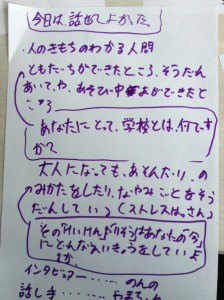 今日は、話せてよかった
・人のきもちのわかる人間
ともだちができたところ、そうだん
あいてや、あそび中まができたと
ころ
あなたにとって、学校とは、何です
か?
大人になっても、あそんだり、
みかたをしたり、なやみごとをそう
だんしている(ストレスはっさん)
そのけいけんやりそうはあなたの「今」
にどんなえいきょうをしている
か
インタビュアー……のんの
話し手